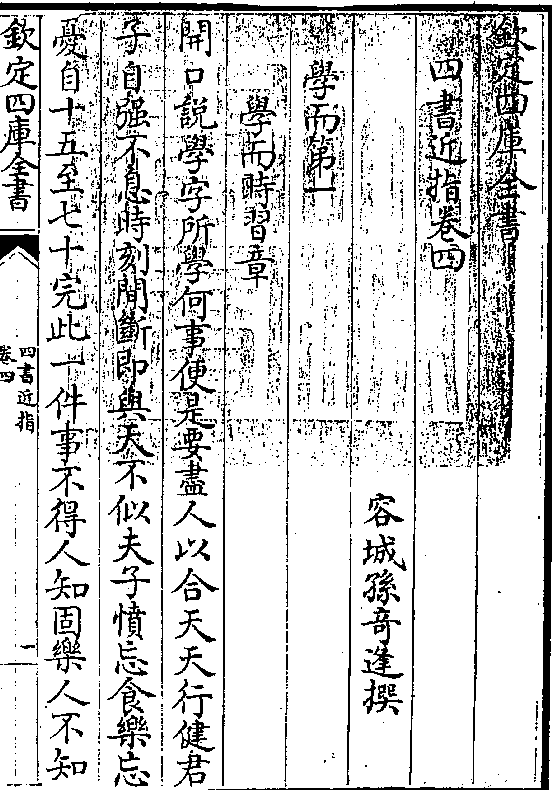 欽定四庫全書
四書近指卷四
容城孫奇逢撰
學而第一
學而時習章
開口說學字所學何事便是要盡人以合天天行健君
子自强不息時刻間斷即與天不似夫子憤忘食樂忘
憂自十五至七十完此一件事不得人知固樂人不知
欽定四庫全書
四書近指
卷四
一